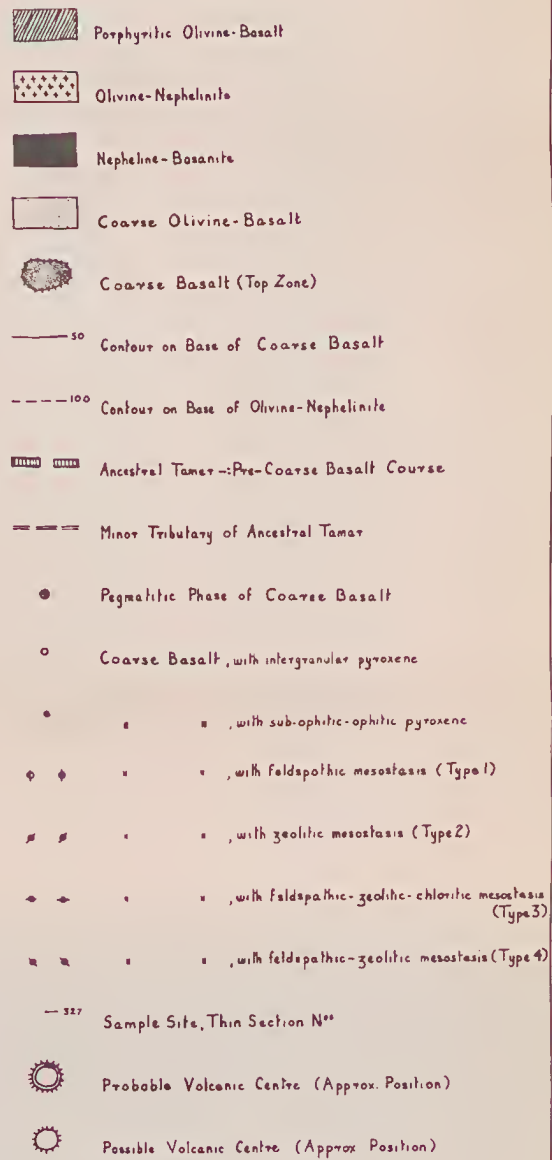 Porphyritic Olivine-Basalt
Olivine-Nephelinite
Nepheline-Basanite
Coarse Olivine-Basalt
Coarse Basalt (Top Zone)
50 Contour on Base of Coarse Basalt
100 Contour on Base of Olivine-Nephelinite
Ancestral Tamar -: Pre-Coarse Basalt Course
Minor Tributary of Ancestral Tamar
Pegmatitic Phase of Coarse Basalt
Coarse Basalt, with intergranular pyroxene
" " , with sub-ophitic-ophitic pyroxene
" " , with feldspathic mesostasis (Type 1)
" " , with zeolitic mesostasis (Type 2)
" " , with feldspathic-zeolitic-chloritic mesostasis
(Type 3)
" " , with feldspathic-zeolitic mesostasis (Type 4)
327 Sample Site, Thin Section Nos
Probable Volcanic Centre (Approx. Position)
Possible Volcanic Centre (Approx Position)